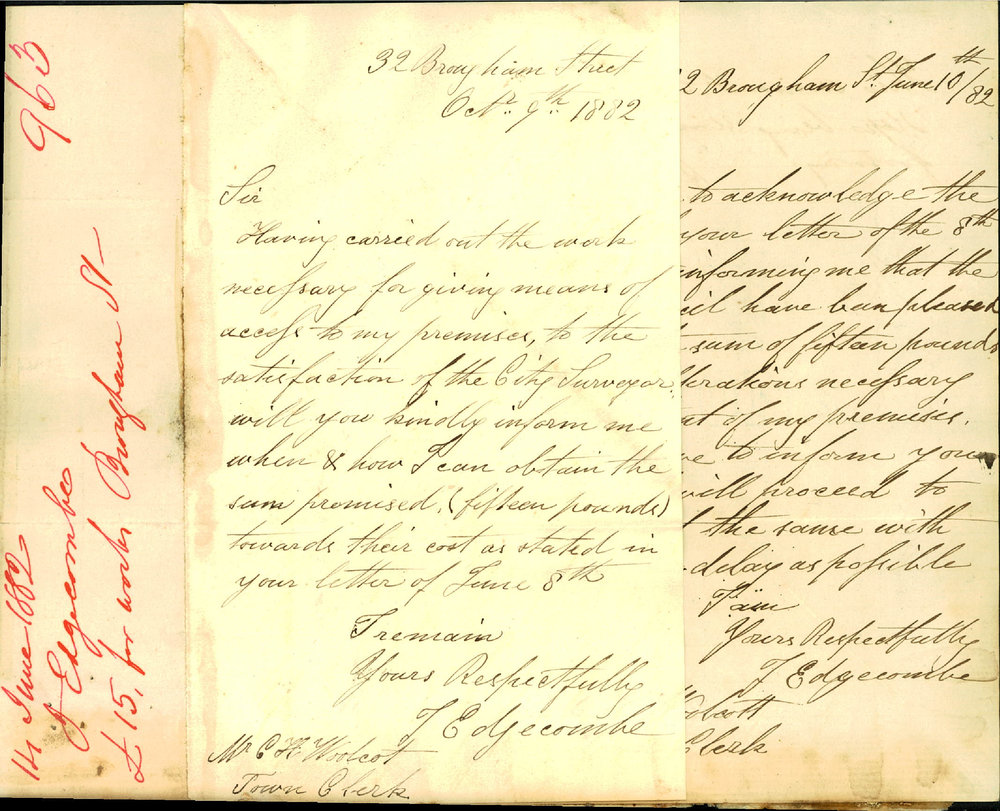 963
14 June 1882
J Edgecombe
£15, for works Brougham St
32 Brougham Street
Octr. 9th. 1882
Sir
Having carried out the work
necessary for giving means of
access to my premises, to the
satisfaction of the City Surveyor
will you kindly inform me
when & how I can obtain the
sum promised, (fifteen pounds)
towards their cost as stated in
your letter of June 8th
I remain
Yours Respectfully
J Edgecombe
Mr C H Woolcot
Town Clerk
2 Brougham St. June 10th/82
to acknowledge the
your letter of the 8th
informing me that the
cil have ban pleased
sum of fifteen pounds
lterations necessary
nt of my premises.
ve to inform you
will proceed to
the sause with
delay as possible
I am
Yours Respectfully
J Edgecombe
olcott
Clerk